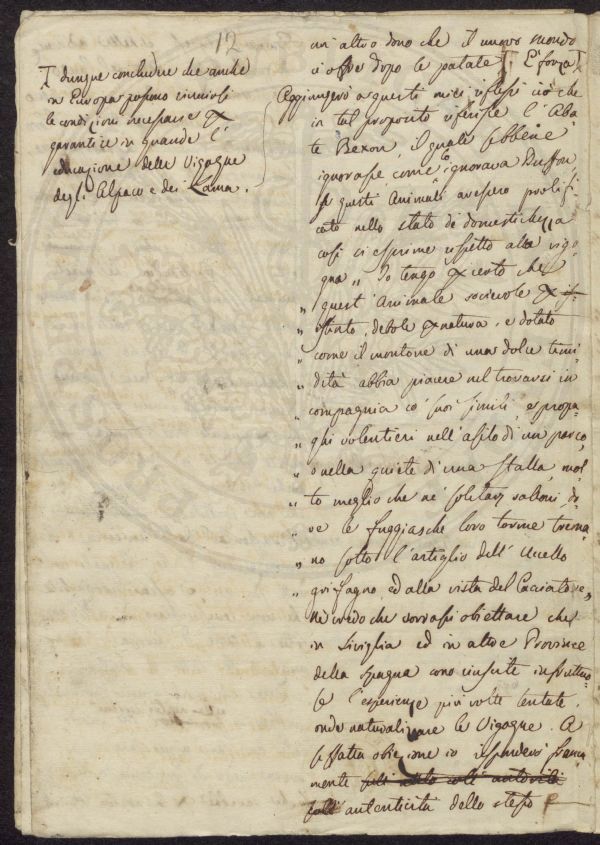 12
dunque concludere che anche
in Europa possono riunirsi
le condizioni necessarie
garantire in grande l'
educazione delle Vigogne
degli Alpaco e dei Lama.
un' altro dono che il nuovo mondo
ci offre dopo le patate. È forza
Aggiungerò a questi miei riflessi ciò che
in tal proposito riferisce l'Aba-
te Bexon, il quale sebbene
ignorasse come lo ignorava Buffon,
se questi Animali avessero prolifi-
cato nello stato di domestichezza
così si esprime rispetto alla vigo-
gna „ Io tengo per certo che
„ quest' Animale socievole per i-
„ stinto, debole per natura, e dotato
„ come il montone di una dolce timi-
„ dità abbia piacere nel trovarsi in
„ compagnia co' suoi simili, e propa-
„ ghi volentieri nell'asilo di un parco,
„ o nella quiete di una stalla, mol-
„ to meglio che ne' solitarj valloni, do-
„ ve le fuggiasche loro torme trema-
„ no sotto l'artiglio dell' Uccello
„ grifagno, ed alla vista del Cacciatore„
ne credo che sorrassi obiettare che
in Siviglia ed in altre Province
della Spagna sono riuscite infruttuo-
se l'esperienze più volte tentate
onde naturalizzare le Vigogne. A
siffatta obiezione io risponderò franca-
mente
autenticità dello stesso